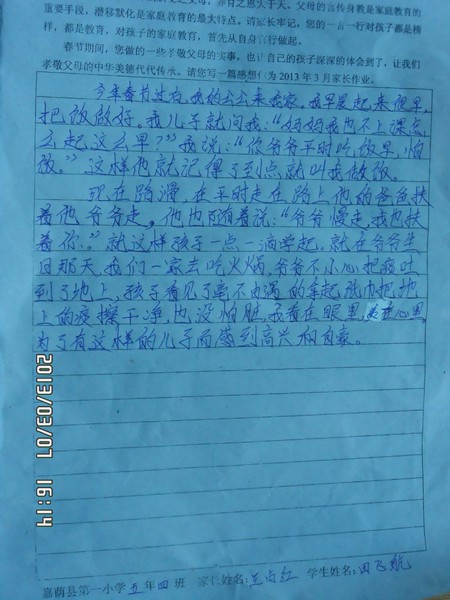 重要手段,潜移默化是家庭教育的最大特点,请家长牢记,您的一言一行对孩子都是榜
样,都是教育,对孩子的家庭教育,首先从自身言行做起。
春节期间,您做的一些孝敬父母的实事,也让自己的孩子深深的体会到了,让我们
孝敬父母的中华美德代代传承。请您写一篇感想作为2013年3月家长作业。
今年春节过后,我的公公来我家。我早晨起来很早,
把饭做好。我儿子就问我:“妈妈我也不上课怎
么起这么早?”我说:“你爷爷平时吃饭早,怕
饿。”这样他就记得了到点就叫我做饭。
现在路滑,在平时走在路上他的爸爸扶
着他爷爷走。他也随着说:“爷爷慢走,我也扶
着你。”就这样孩子一点一滴学起,就在爷爷生
日那天,我们一家去吃火锅,爷爷不小心把痰吐
到了地上,孩子看见了毫不犹豫的拿起纸巾把地
上的痰擦干净,也没怕脏,我看在眼里,美在心里,
为了有这样的儿子而感到高兴和自豪。
2013/03/07 16:14
嘉荫县第一小学五年四班 家长姓名:兰向红 学生姓名:田飞航